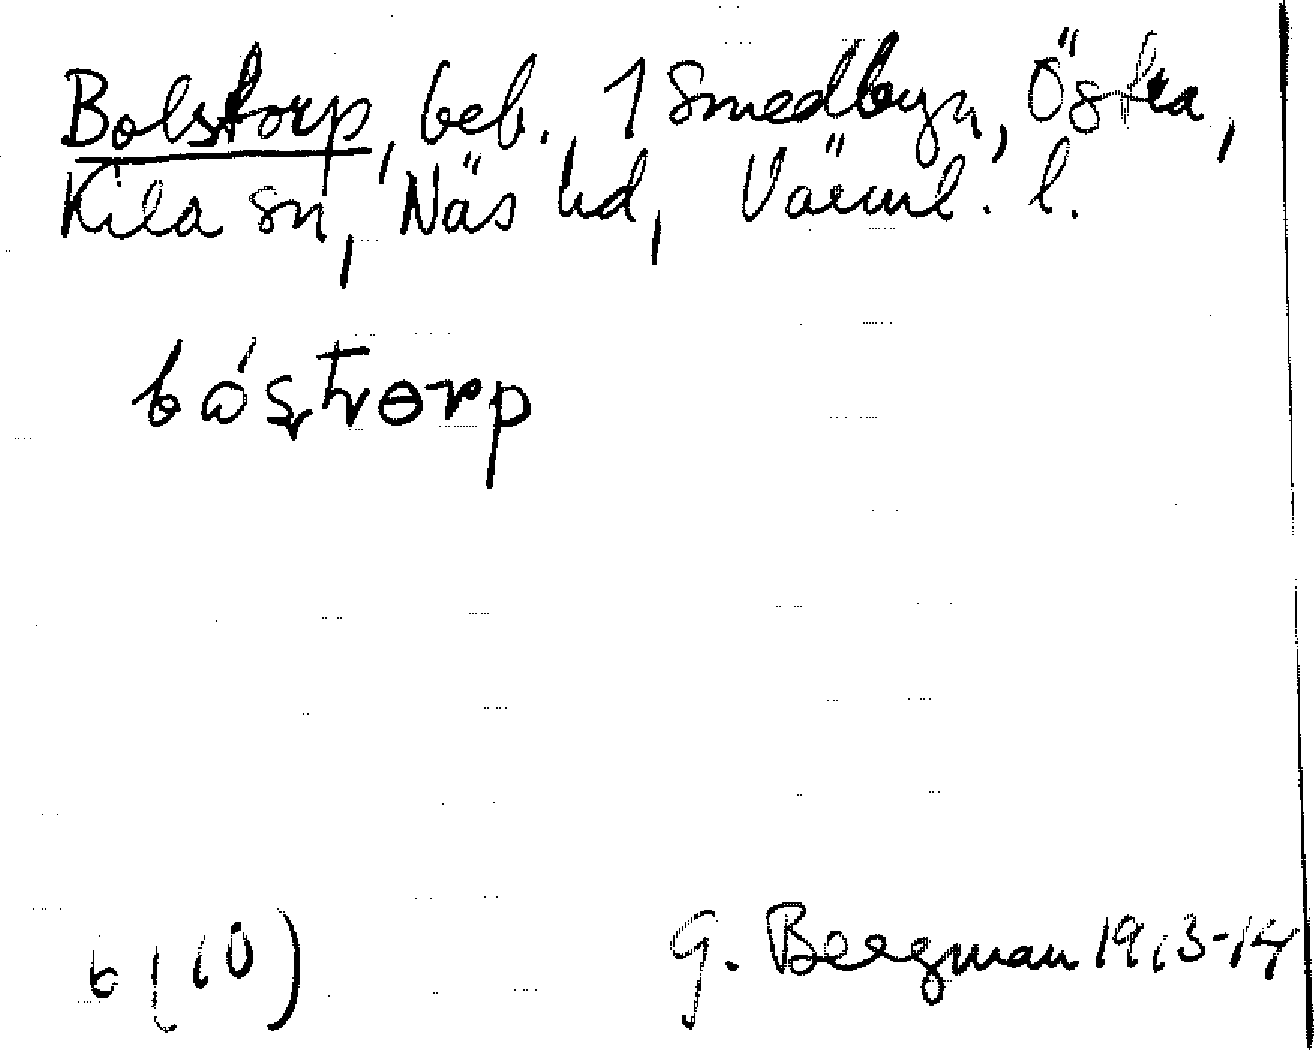 Bolstorp, beb. 1 Smedbyn, Östra,
Kila sn, Näs hd, Värml. l.
G. Bergman 1913-14